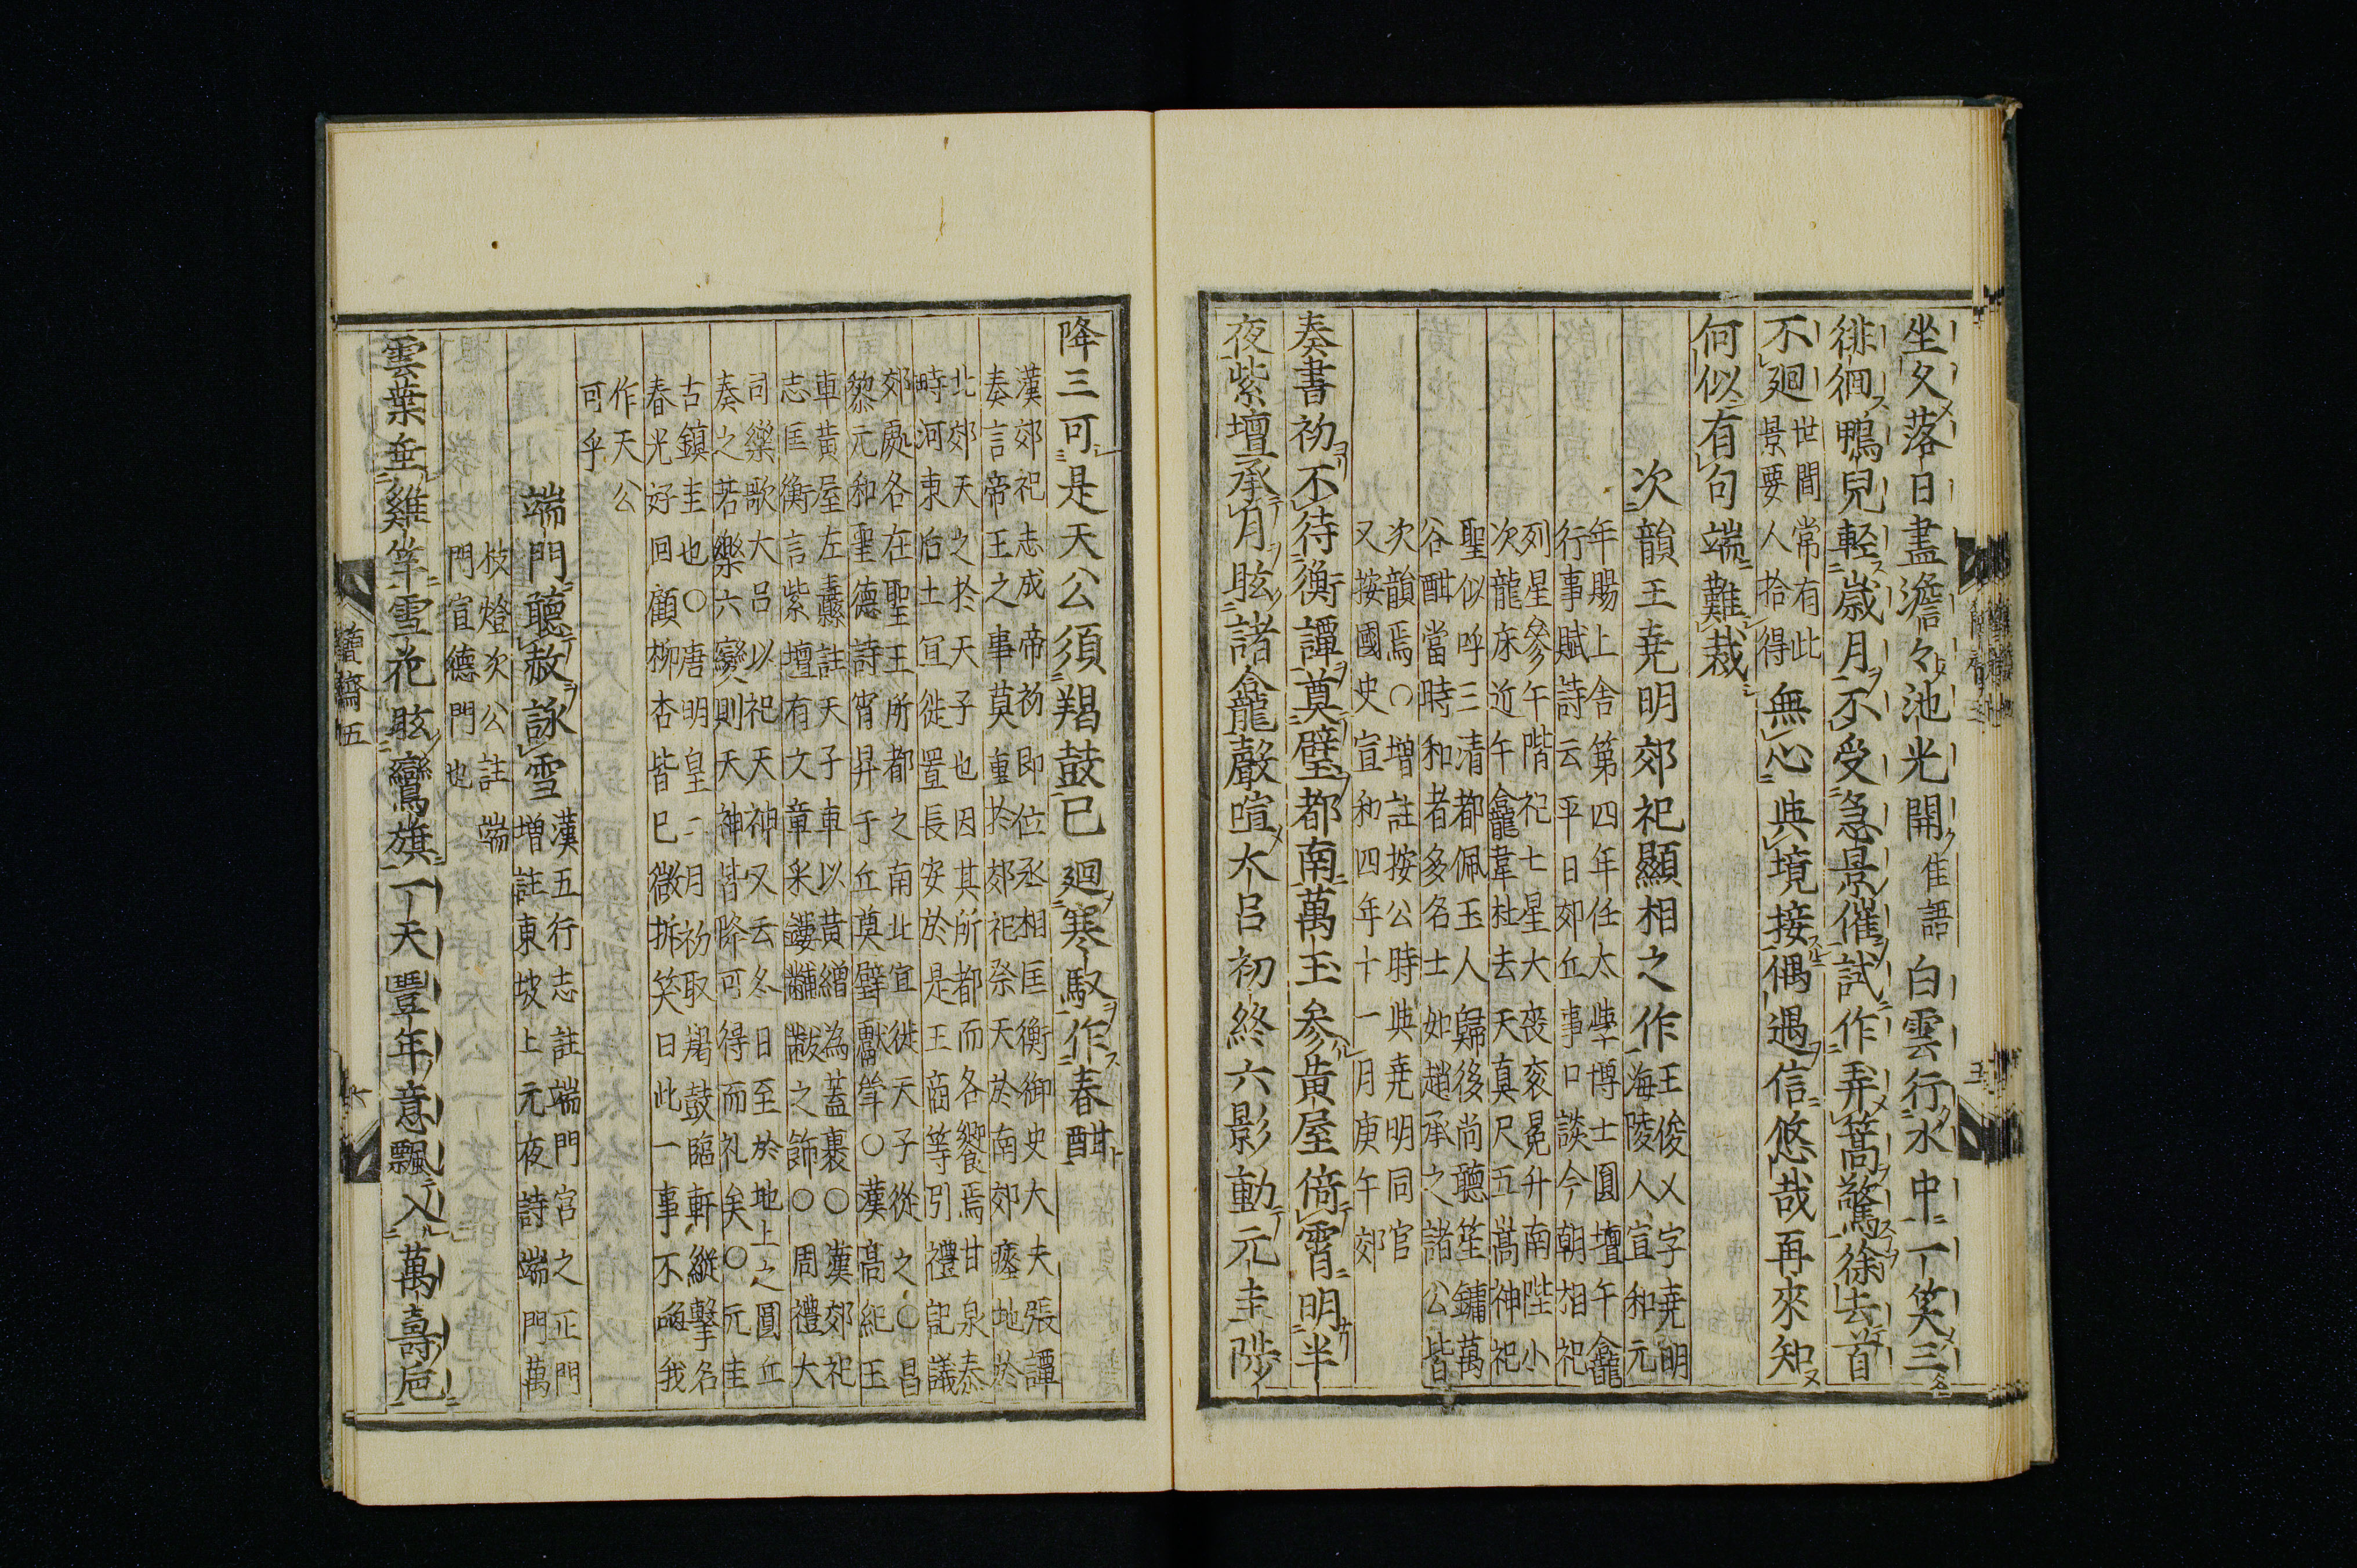 坐久落日盡澹々池光開隹語白雲行水中一笑三
徘徊鴨兒輕歲月不受急景催試作弄篙驚徐去首
不廻世間常有此
景要人拾得
無心與境接偶遇信悠哉再來知
何似有句端難裁
次韻王堯明郊祀顯相之作王俊乂字堯明
海陵人宣和元
年賜上舍第四年任太學博士圓壇午龕
行事賦詩云平日郊丘事口談今朝相祀
列星參午階祀七星大裘衮冕升南陛小
次龍床近午龕韋杜去天真尺五嵩神祀
聖似呼三清都佩玉人歸後尚聽笙鏞萬
谷酣當時和者多名士如趙承之諸公皆
次韻焉○增註按公時與堯明同官
又按國史宣和四年十一月庚午郊
奏書初不待衡譚奠璧都南萬玉參黃屋倚霄明半
夜紫壇承月眩諸龕聲喧大呂初終六影動元圭陟
降三可是天公須羯鼓已廻寒馭作春酣
漢郊祀志成帝初即位丞相匡衡御史大夫張譚
奏言帝王之事莫重於郊祀祭天於南郊瘞地於
北郊天之於天子也因其所都而各饗焉甘泉泰
畤河東后土宜徙置長安於是王商等引禮記議
郊處各在聖王所都之南北宜徙天子從之○昌
黎元和聖德詩宵昇于丘奠璧獻斝○漢高紀王
車黃屋左纛註天子車以黃繒為蓋裏○漢郊祀
志匡衡言紫壇有文章采鏤黼黻之飾○周禮大
司樂歌大呂以祀天神又云冬日至於地上之圓丘
奏之若樂六變則天神皆降可得而礼矣○元圭
古鎮圭也○唐明皇二月初取羯鼓臨軒縱擊名
春光好回顧柳杏皆已微拆笑曰此一事不喚我
作天公
可乎
端門聽赦詠雪漢五行志註端門宮之正門
增註東坡上元夜詩端門萬
枝燈次公註端
門宣德門也
雲葉垂雞竿雪花眩鸞旗一天豐年意飄入萬壽巵
簡齋五